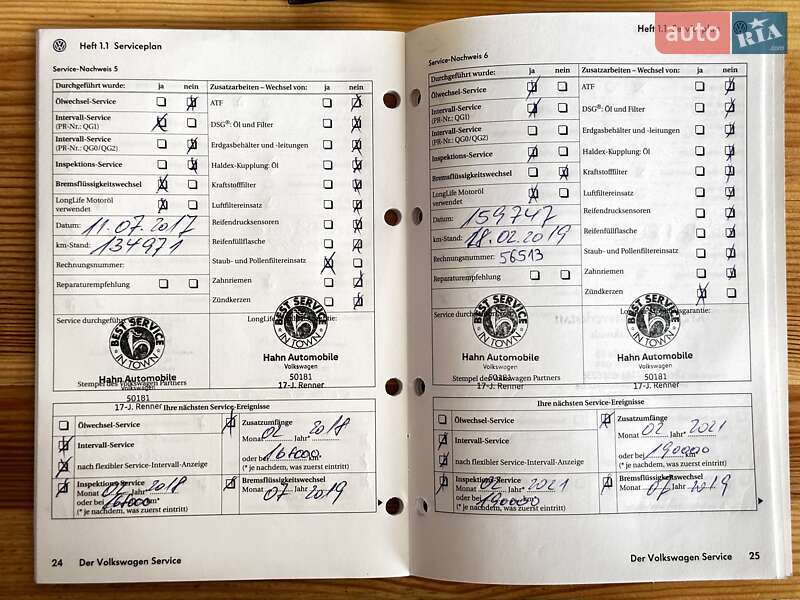 Heft 1.1 Serviceplan
Service-Nachweis 5
Durchgeführt wurde: ja nein
Ölwechsel-Service
Intervall-Service
(PR-Nr.: QG1)
Intervall-Service
(PR-Nr.: QG0/QG2)
Inspektions-Service
Bremsflüssigkeitswechsel
LongLife Motoröl
verwendet
Datum: 11.07.2017
km-Stand: 134971
Rechnungsnummer:
Reparaturempfehlung
Zusatzarbeiten – Wechsel von: ja nein
ATF
DSG®: Öl und Filter
Erdgasbehälter und -leitungen
Haldex-Kupplung: Öl
Kraftstofffilter
Luftfiltereinsatz
Reifendrucksensoren
Reifenfüllflasche
Staub- und Pollenfiltereinsatz
Zahnriemen
Zündkerzen
Service durchgeführt
BEST SERVICE
IN TOWN
Hahn Automobile
Volkswagen
50181
17-J. Renner
Stempel des Volkswagen Partners
BEST SERVICE
IN TOWN
Hahn Automobile
Volkswagen
50181
17-J. Renner
Ihre nächsten Service-Ereignisse
Ölwechsel-Service
Intervall-Service
nach flexibler Service-Intervall-Anzeige
Inspektions-Service
Monat 02 Jahr* 2018
oder bei 165000 km*
(* je nachdem, was zuerst eintritt)
Zusatzumfänge
Monat 02 Jahr* 2018
oder bei 165000 km*
(* je nachdem, was zuerst eintritt)
Bremsflüssigkeitswechsel
Monat 07 Jahr 2019
24 Der Volkswagen Service
Heft 1.1 Serviceplan
auto RIA
.com
Service-Nachweis 6
Durchgeführt wurde: ja nein
Ölwechsel-Service
Intervall-Service
(PR-Nr.: QG1)
Intervall-Service
(PR-Nr.: QG0/QG2)
Inspektions-Service
Bremsflüssigkeitswechsel
LongLife Motoröl
verwendet
Datum: 159747
km-Stand: 18.02.2019
Rechnungsnummer: 56513
Reparaturempfehlung
Zusatzarbeiten – Wechsel von: ja nein
ATF
DSG®: Öl und Filter
Erdgasbehälter und -leitungen
Haldex-Kupplung: Öl
Kraftstofffilter
Luftfiltereinsatz
Reifendrucksensoren
Reifenfüllflasche
Staub- und Pollenfiltereinsatz
Zahnriemen
Zündkerzen
Service durchgeführt
BEST SERVICE
IN TOWN
Hahn Automobile
Volkswagen
50181
17-J. Renner
Stempel des Volkswagen Partners
BEST SERVICE
IN TOWN
Hahn Automobile
Volkswagen
50181
17-J. Renner
Ihre nächsten Service-Ereignisse
Ölwechsel-Service
Intervall-Service
nach flexibler Service-Intervall-Anzeige
Inspektions-Service
Monat 02 Jahr* 2021
oder bei 190000 km*
(* je nachdem, was zuerst eintritt)
Zusatzumfänge
Monat 02 Jahr* 2021
oder bei 190000 km*
(* je nachdem, was zuerst eintritt)
Bremsflüssigkeitswechsel
Monat 07 Jahr 2019
Der Volkswagen Service 25